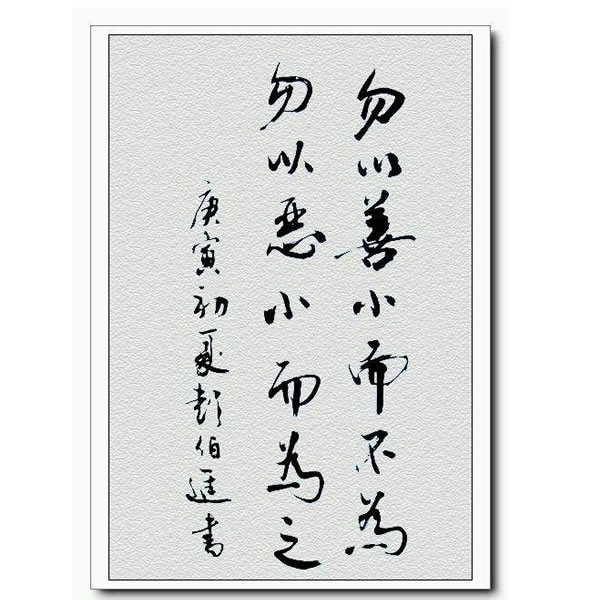 勿以善小而不為
勿以恶小而為之
庚寅初夏彭伯進書